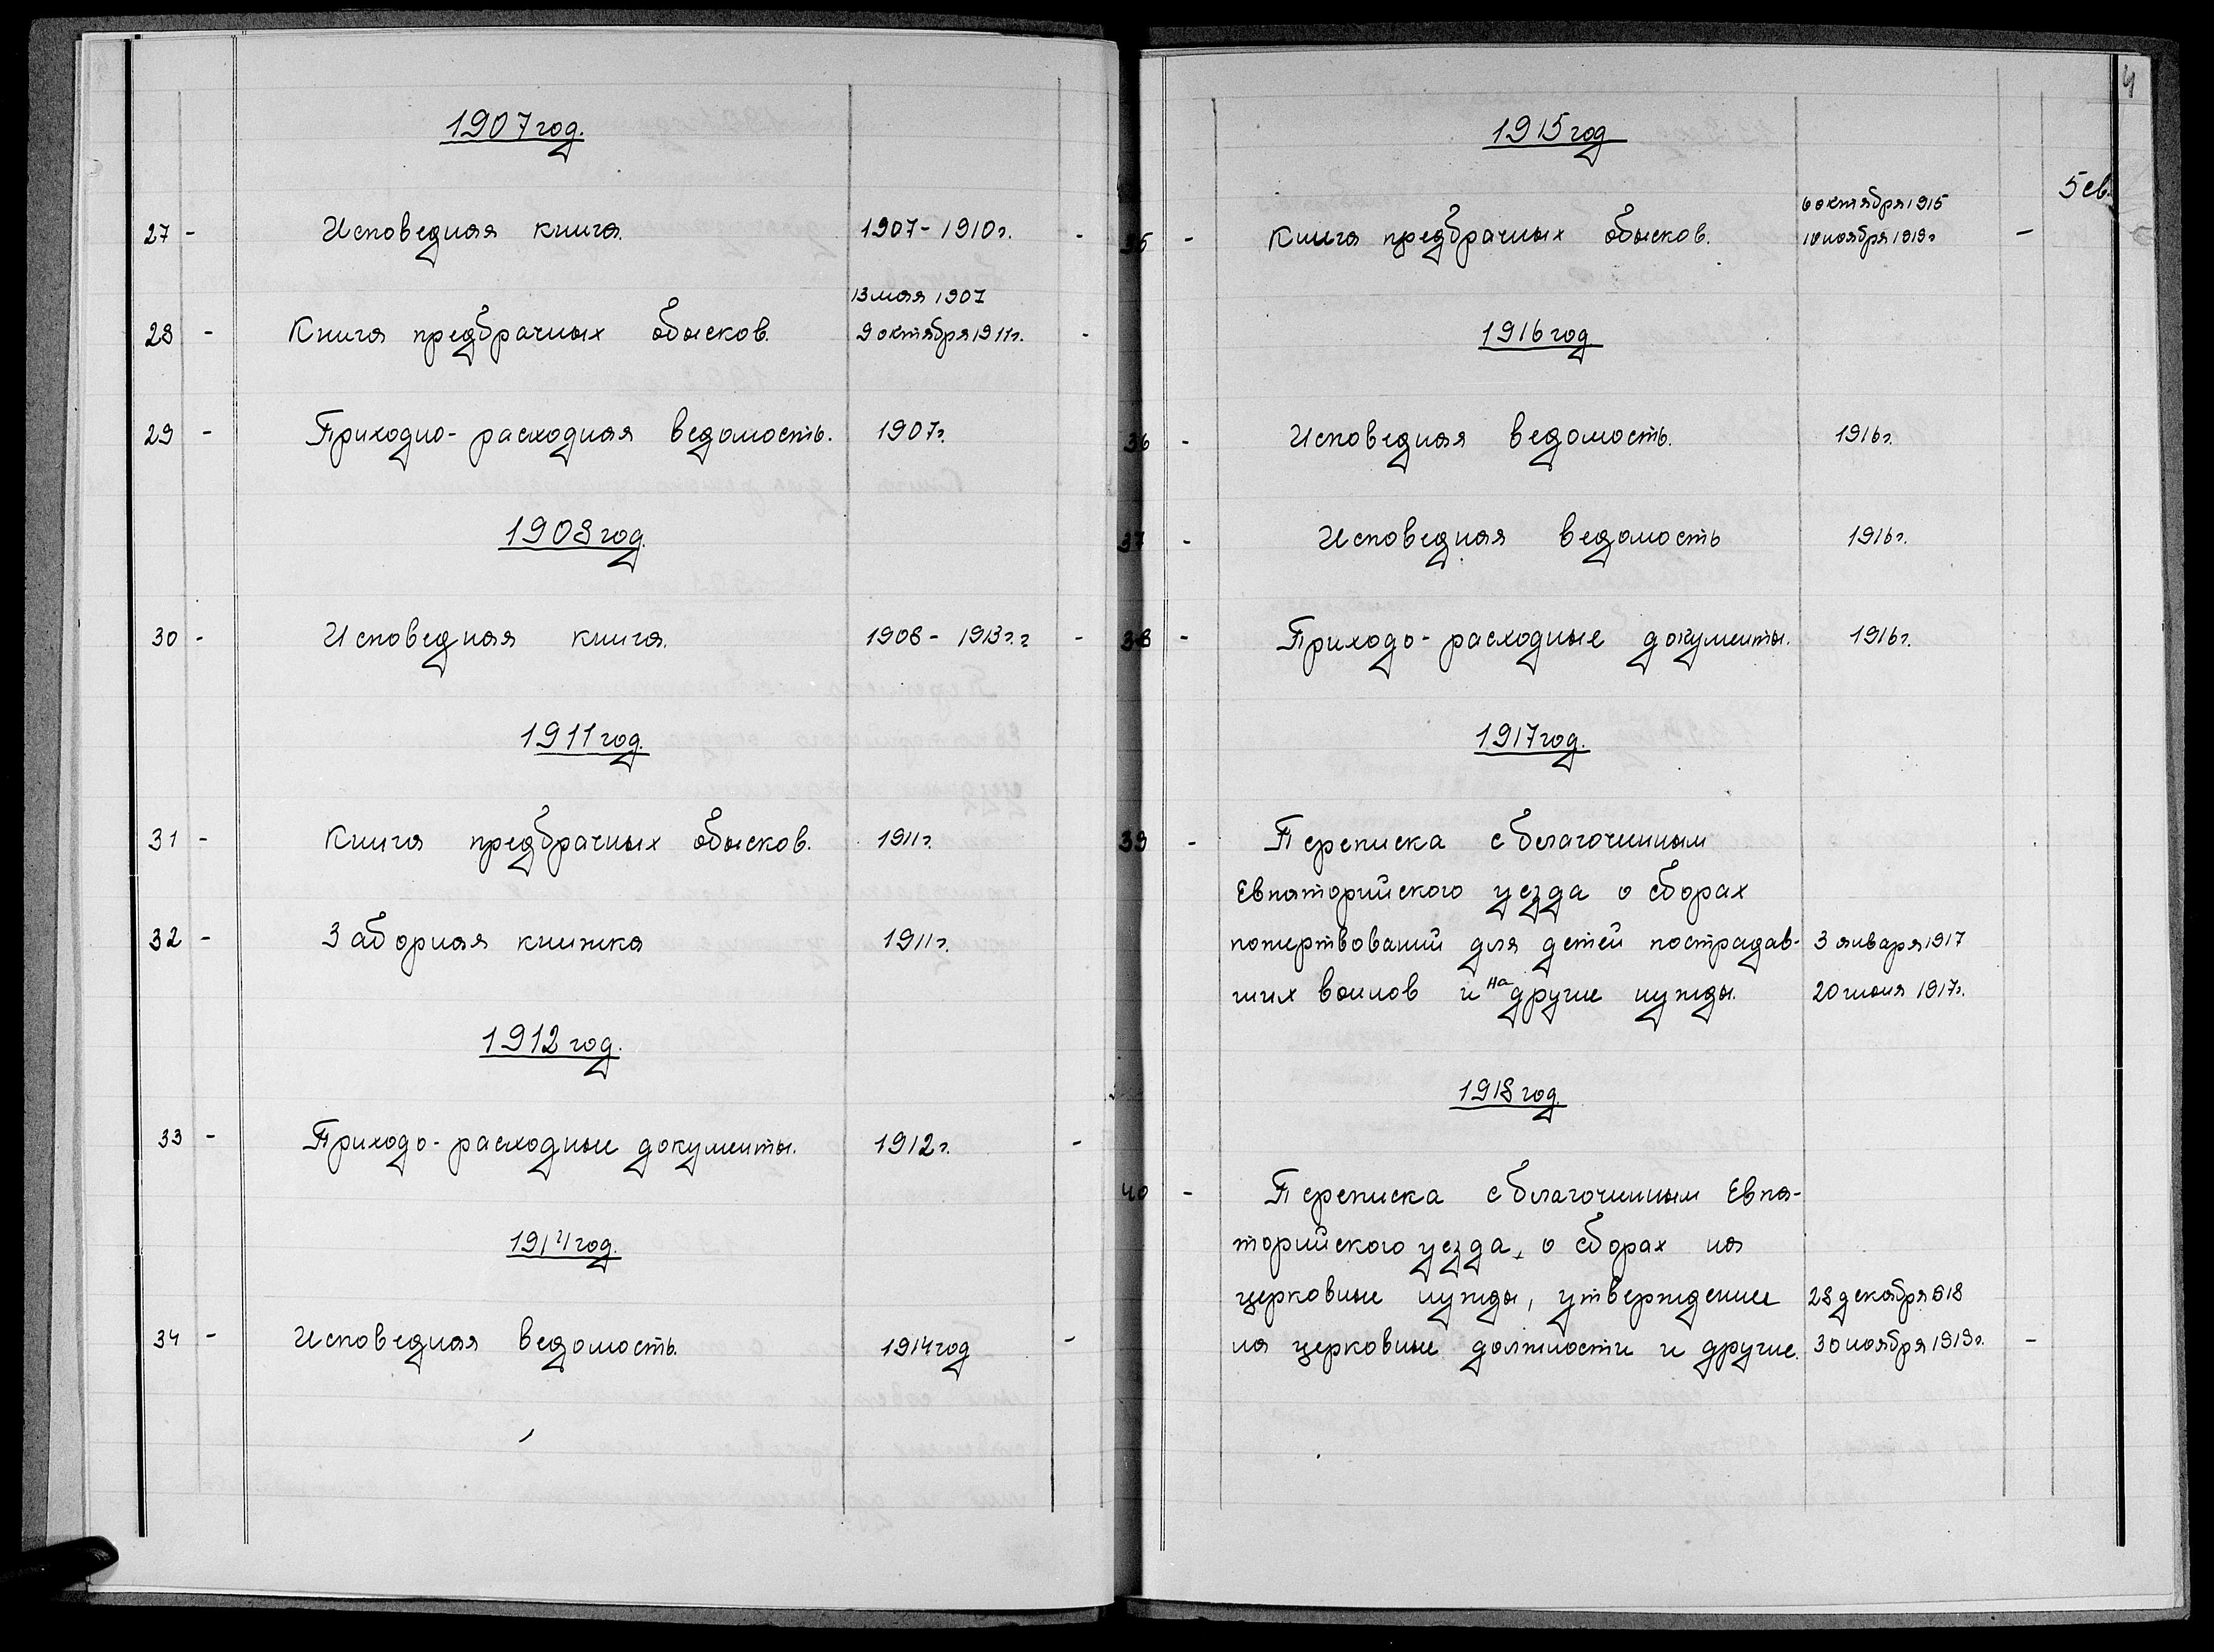 1907 год.
27 - Исповедная книга. 1907 - 1910 г. -
13 мая 1907
28 - Книга предбрачных обысков. 9 октября 1911 г. -
29 - Приходно-расходная ведомость. 1907 г.
1908 год.
30 - Исповедная книга. 1908 - 1913 г.г. -
1911 год.
31 - Книга предбрачных обысков. 1911 г.
32 - Заборная книжка 1911 г.
1912 год.
33 - Приходо-расходные документы. 1912 г. -
1914 год.
34 - Исповедная ведомость. 1914 год -
4
1915 год
5 св.
6 октября 1915
35 - Книга предбрачных обысков. 10 ноября 1919 г. -
1916 год.
36 - Исповедная ведомость. 1916 г.
37 - Исповедная ведомость 1916 г.
38 - Приходо-расходные документы. 1916 г.
1917 год.
39 - Переписка с благочинным
Евпаторийского уезда о сборах
пожертвований для детей пострадав- 3 января 1917
ших воинов и на другие нужды. 20 июня 1917 г.
1918 год.
40 - Переписка с благочинным Евпа-
торийского уезда, о сборах на
церковные нужды, утверждение 28 декабря 918
на церковные должности и другие. 30 ноября 1919 г. -